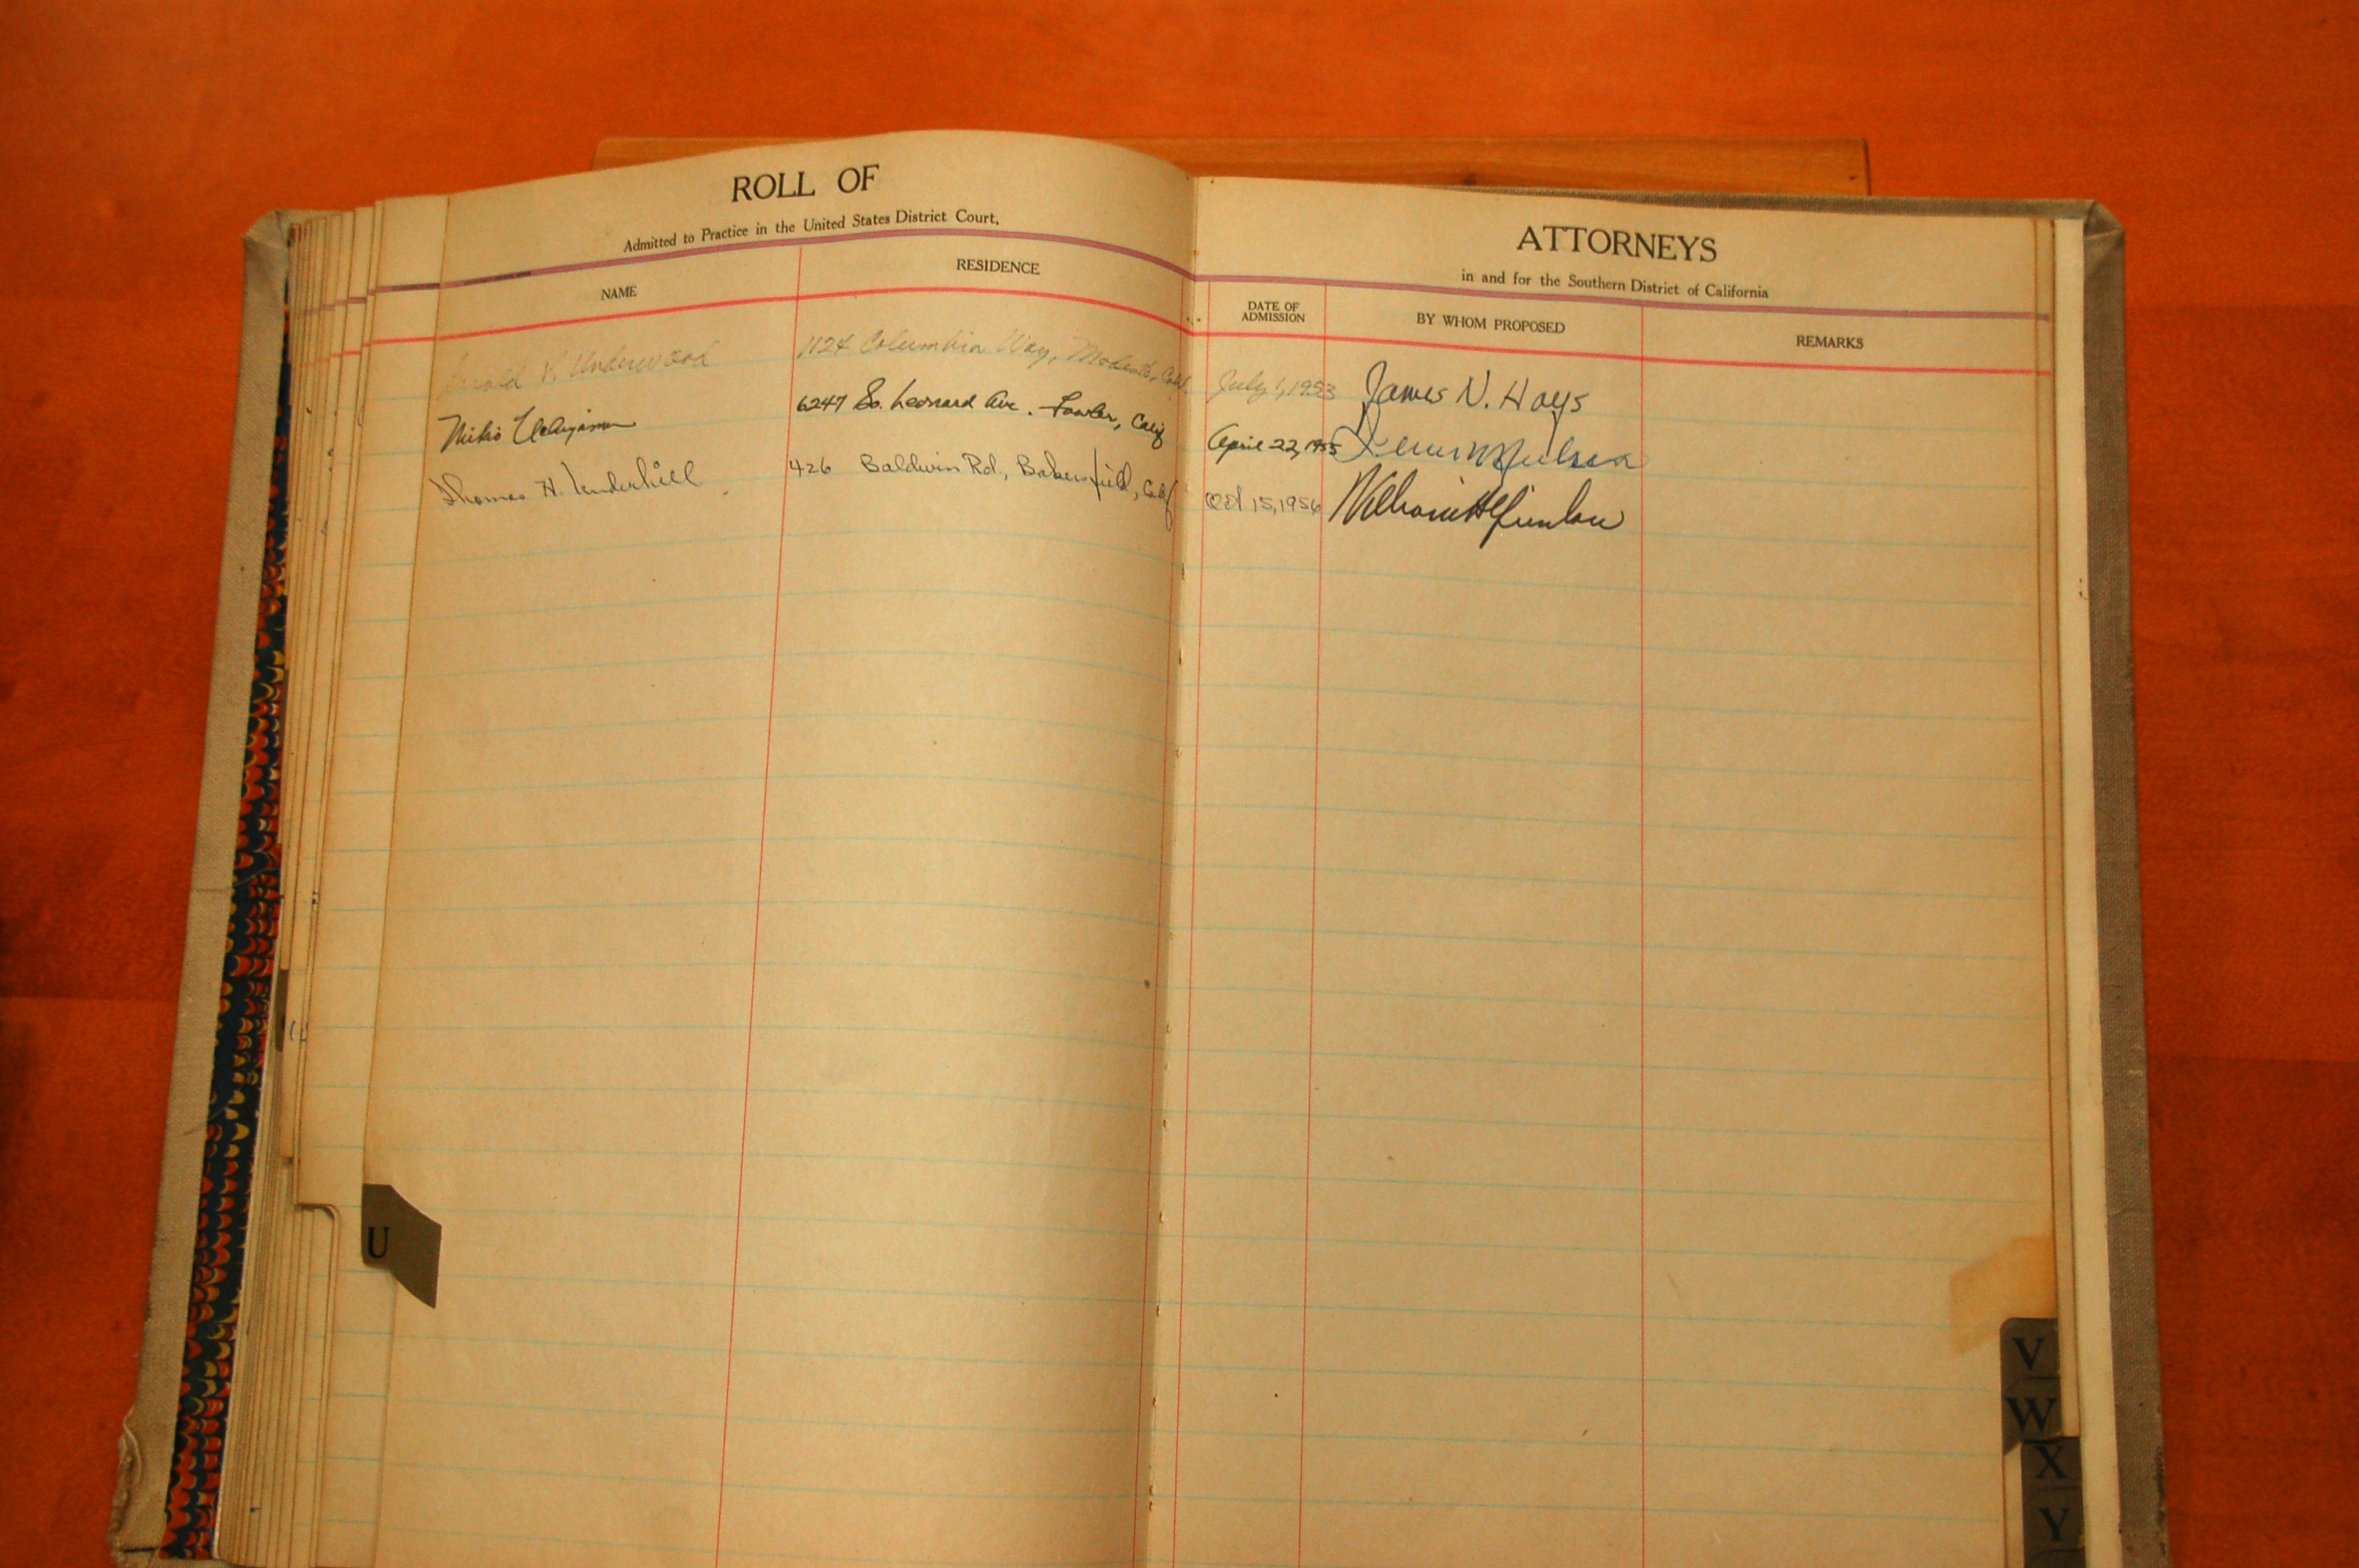 ROLL OF
Admitted to Practice in the United States District Court,
NAME RESIDENCE
V. Underwood 1124 Columbia Way, Modesto, Calif.
Mikio Uchiyama 6247 So. Leonard Ave. Fowler, Calif
Thomas H. Underhill 426 Baldwin Rd., Bakersfield, Calif
U
ATTORNEYS
in and for the Southern District of California
DATE OF ADMISSION BY WHOM PROPOSED REMARKS
July 1, 1953 James N. Hays
April 22, 1955
Oct 15, 1956
V
W
X
Y